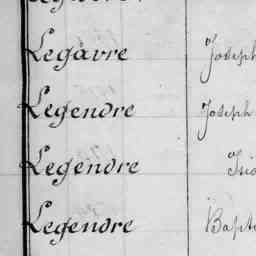 Legavre Joseph
Legendre Joseph
Legendre
Legendre